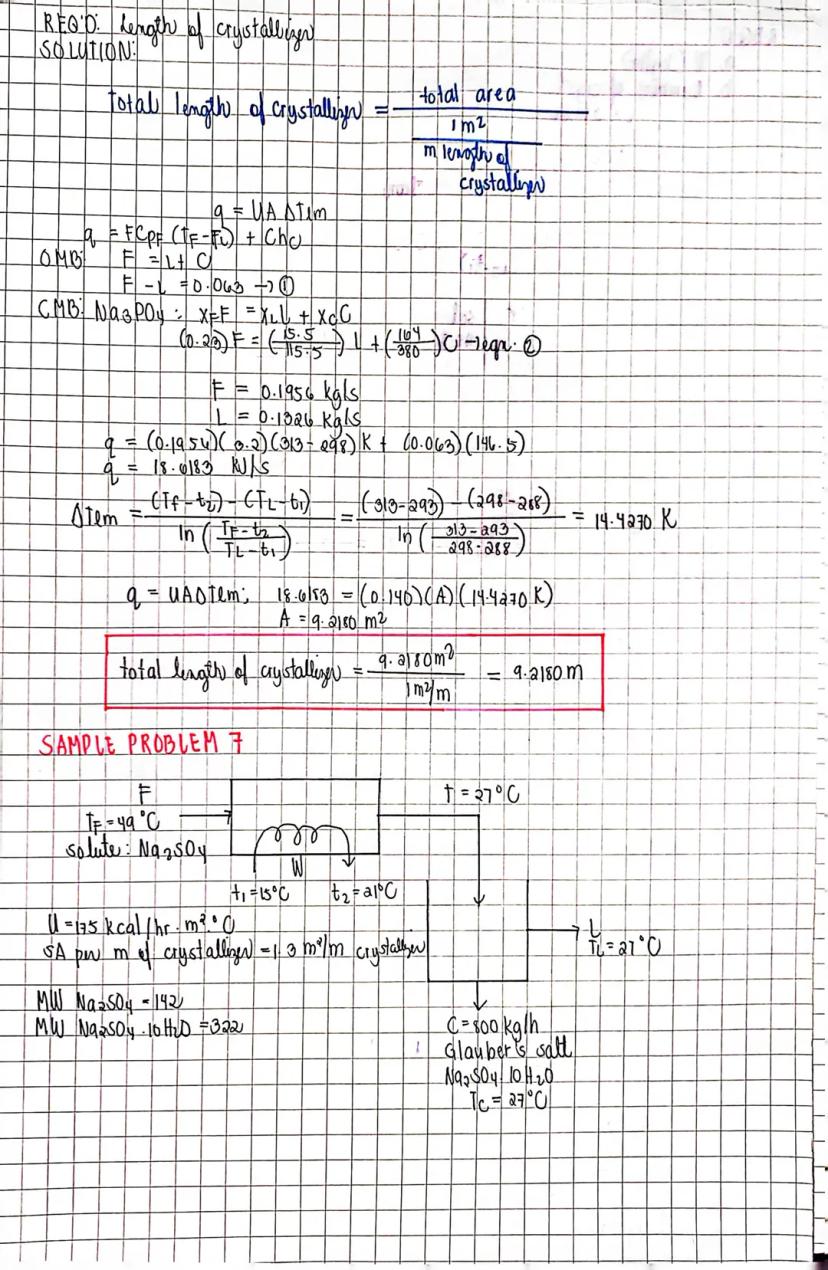 REQ'D: Length of crystallizer
SOLUTION:
Total length of crystallizer = total area / (1 m² / m length of crystallizer)
q = UAΔTlm
q = FCpF (TF-TL) + CHc
OMB: F = L + C
F - L = 0.063 → ①
CMB: Na3PO4 : xFF = xLL + xcC
(0.23) F = (15.5/115.5) L + (164/380) C → eqn. ②
F = 0.1956 kg/s
L = 0.1326 kg/s
q = (0.1956)(3.2)(313-298) K + (0.063)(146.5)
q = 18.6183 kJ/s
ΔTlm = (Tf-t2) - (TL-t1) / ln (TF-t2 / TL-t1) = (313-293) - (298-288) / ln (313-293 / 298-288) = 14.4270 K
q = UAΔTlm; 18.6183 = (0.140)(A)(14.4270 K)
A = 9.2180 m²
total length of crystallizer = 9.2180 m² / 1 m²/m = 9.2180 m
SAMPLE PROBLEM 7
F
TF = 49°C
solute: Na2SO4
W
t1 = 15°C t2 = 21°C
T = 27°C
U = 175 kcal/hr·m²·°C
SA per m of crystallizer = 1.3 m²/m crystallizer
L
TL = 27°C
MW Na2SO4 = 142
MW Na2SO4·10H2O = 322
C = 800 kg/h
Glauber's salt
Na2SO4·10H2O
Tc = 27°C